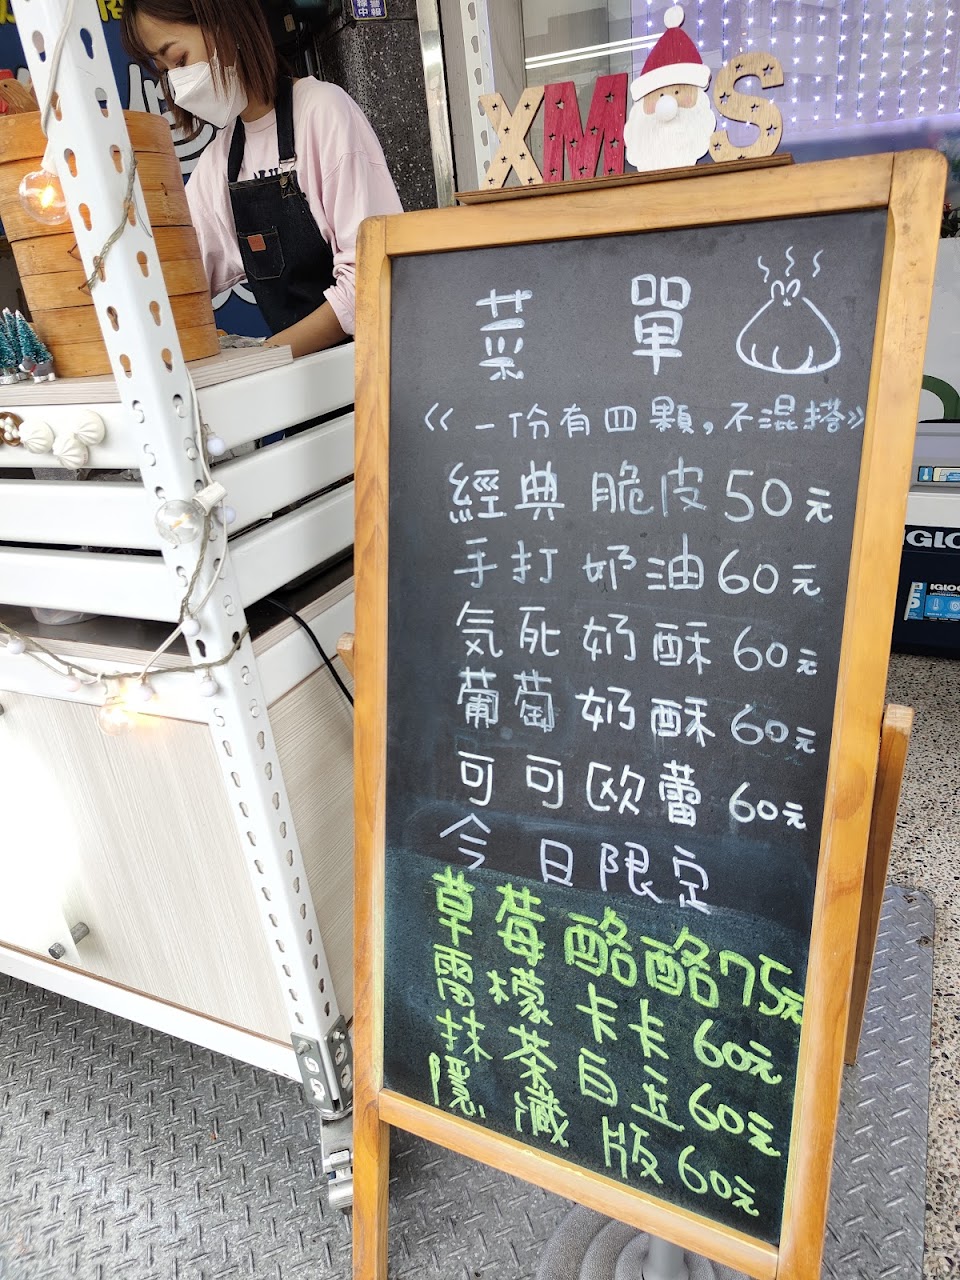 XMAS
菜單
《一份有四顆,不混搭》
經典脆皮50元
手打奶油60元
気死奶酥60元
葡萄奶酥60元
可可欧蕾60元
今日限定
草莓酪酪75元
雷檬卡卡60元
抹茶白玉60元
隱藏版60元
IGLOO